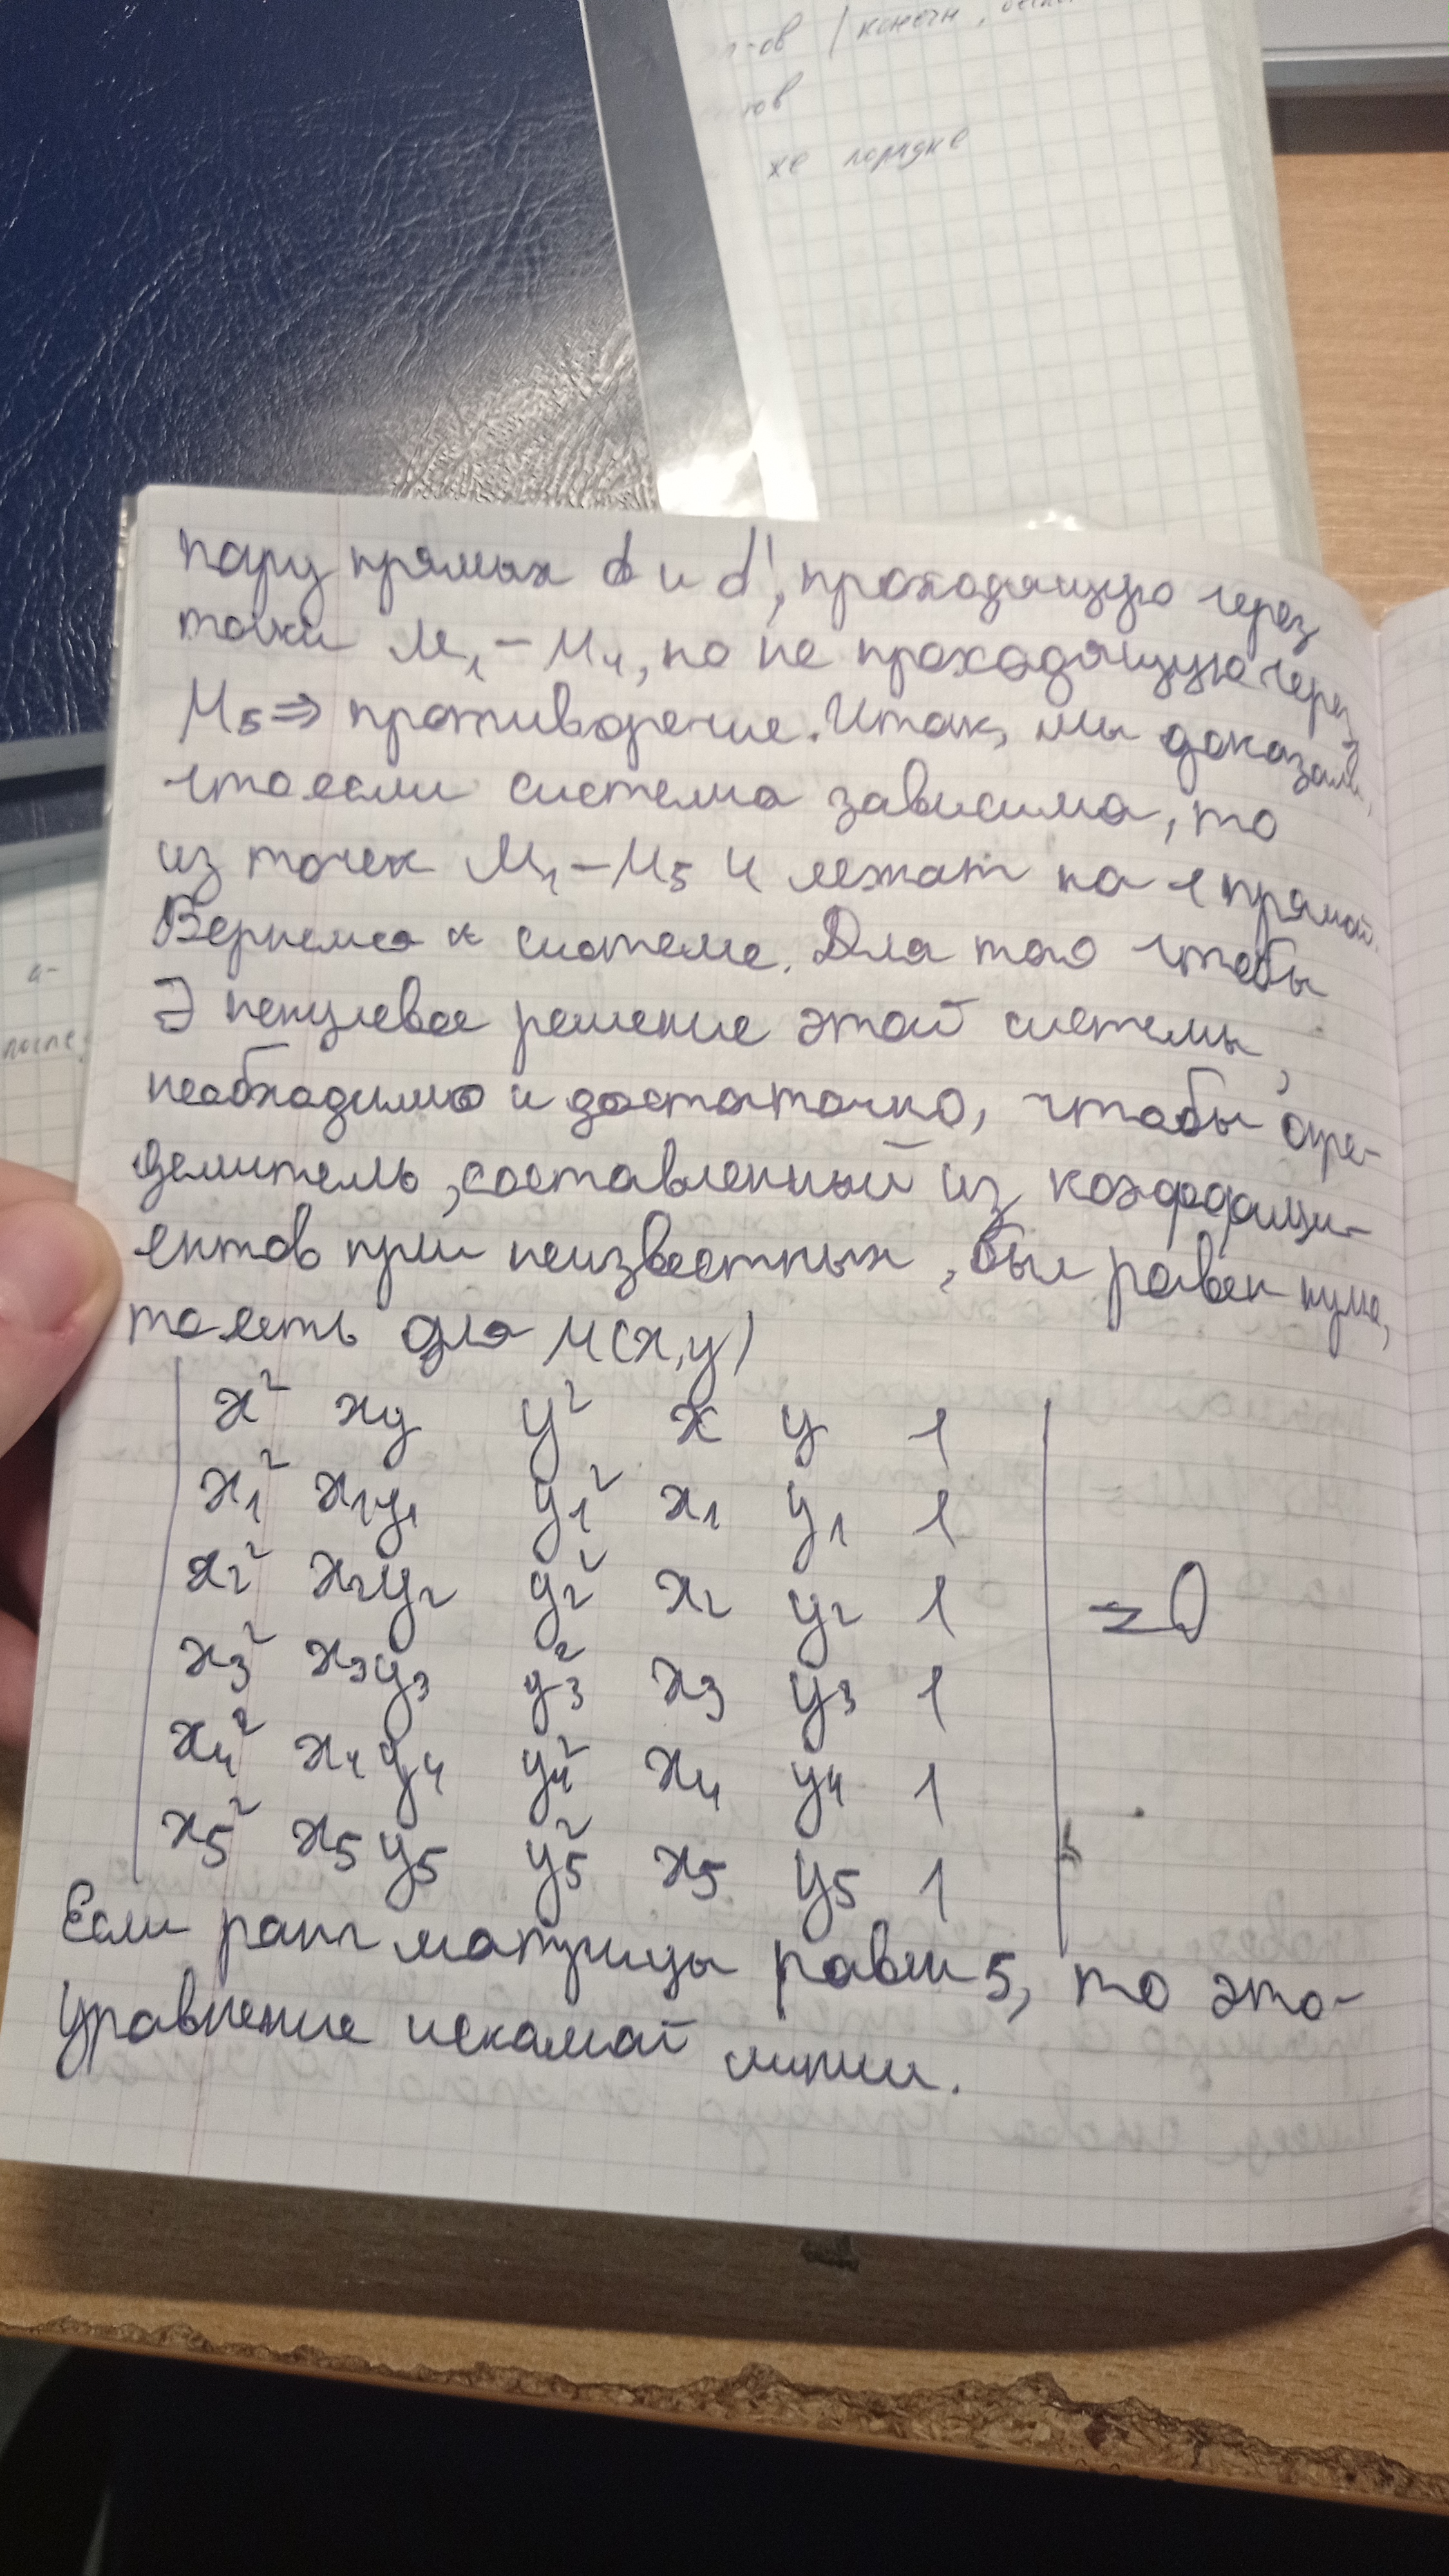 -ов / конечн,
-тов
же порядке
пару прямых d и d', проходящую через
точки M₁ – M₄, но не проходящую через
M₅ ⇒ противоречие. Итак, мы доказали,
что если система зависима, то
из точек M₁ – M₅ 4 лежат на 1 прямой.
Вернемся к системе. Для того чтобы
∃ ненулевое решение этой системы,
необходимо и достаточно, чтобы опре-
делитель, составленный из коэффици-
ентов при неизвестных, был равен нулю,
то есть для M(x,y)
x² xy y² x y 1
x₁² x₁y₁ y₁² x₁ y₁ 1
x₂² x₂y₂ y₂² x₂ y₂ 1
= 0
x₃² x₃y₃ y₃² x₃ y₃ 1
x₄² x₄y₄ y₄² x₄ y₄ 1
x₅² x₅y₅ y₅² x₅ y₅ 1
Если ранг матрицы равен 5, то это-
уравнение искомой линии.